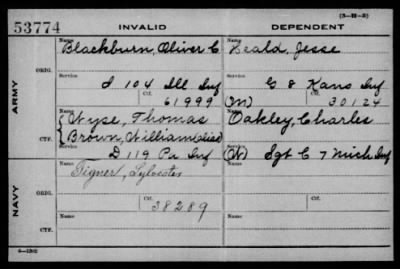 (3-H-2)
53774 INVALID DEPENDENT
Name Name
Blackburn, Oliver C Heald, Jesse
ARMY
ORIG.
Service Service
I 104 Ill Inf G 8 Kans Inf
Ctf. Ctf.
61999 (M) 30124
Name Name
Wyse, Thomas Oakley, Charles
Brown, William (alias)
CTF.
Service Service
D 119 Pa Inf (W) Sgt C 7 Mich Inf
NAVY
ORIG.
Name Name
Tigner, Sylvester
Ctf. Ctf.
38289
CTF.
Name Name
6-1302